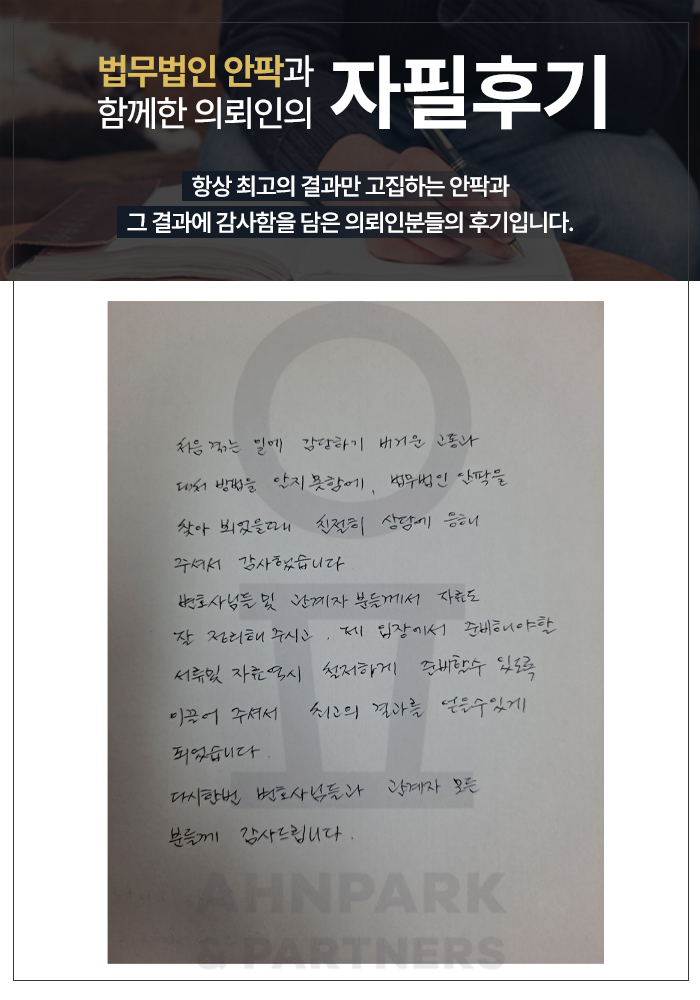 법무법인 안팍과
함께한 의뢰인의
자필후기
항상 최고의 결과만 고집하는 안팍과
그 결과에 감사함을 담은 의뢰인분들의 후기입니다.
처음 겪는 일에 감당하기 버거운 고통과
대처 방법을 알지 못함에, 법무법인 안팍을
찾아 뵈었을때 친절히 상담에 응해
주셔서 감사했습니다
변호사님들 및 관계자 분들께서 자료도
잘 정리해 주시고, 제 입장에서 준비해야할
서류및 자료역시 철저하게 준비할수 있도록
이끌어 주셔서 최고의 결과를 얻을수있게
되었습니다.
다시한번 변호사님들과 관계자 모든
분들께 감사드립니다.
AHNPARK
& PARTNERS